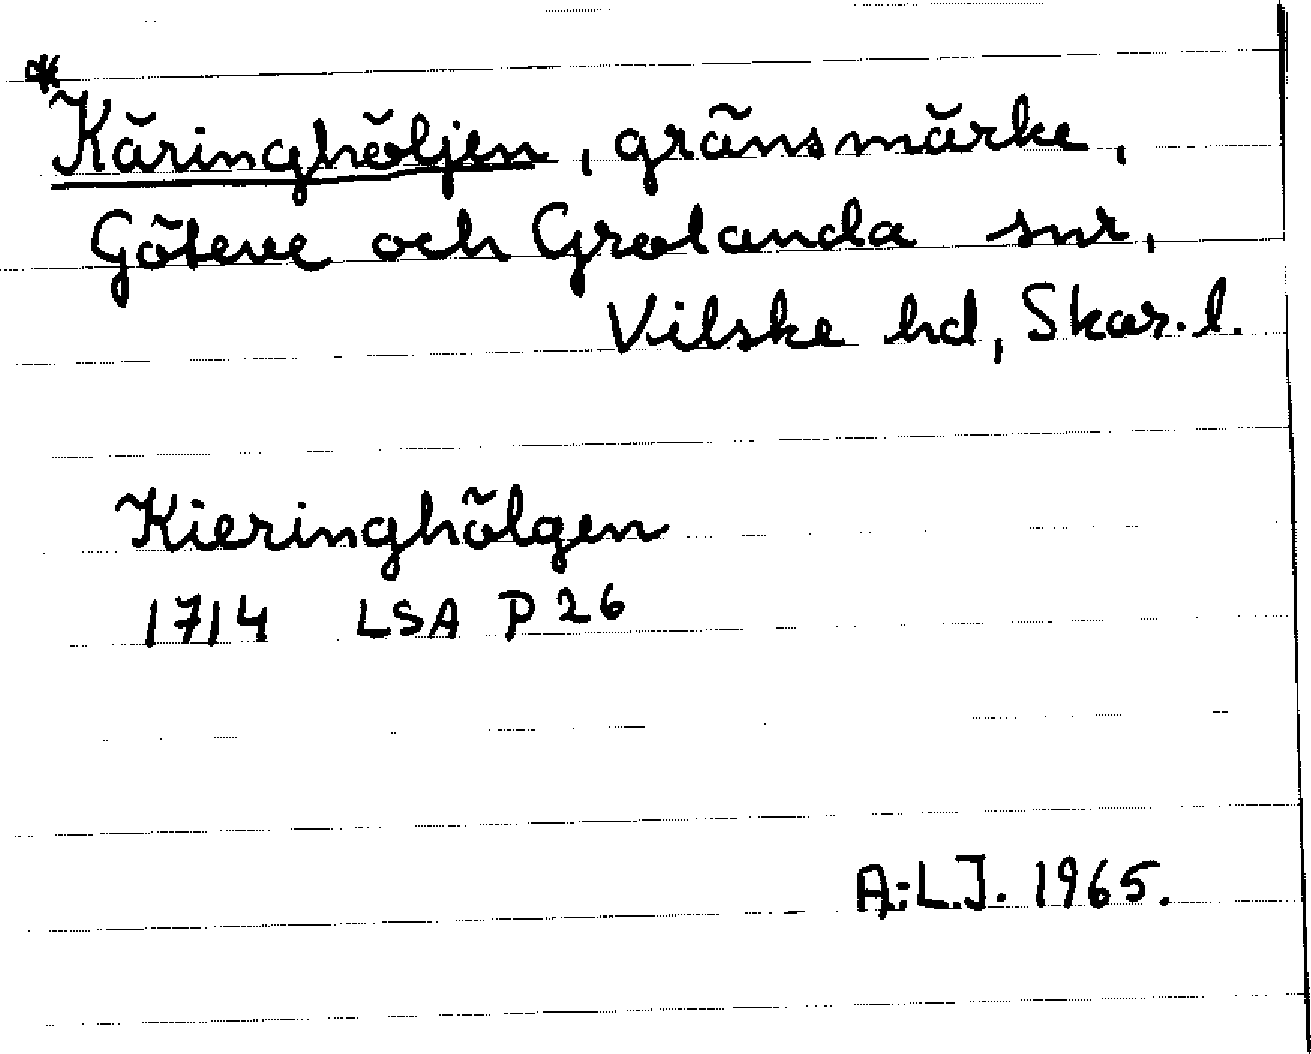 *Käringhöljen, gränsmärke,
Göteve och Grolanda snr,
Vilske hd, Skar. l.
Kieringhölgen
1714 LSA P 26
A:L.J. 1965.